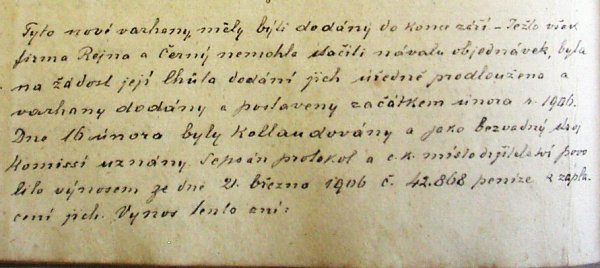 Tyto nové varhany měly býti dodány do konce září - Ježto však
firma Rejna a Černý nemohla stačiti návalu objednávek, byla
na žádost její lhůta dodání jich úředně prodloužena a
varhany dodány a postaveny začátkem února r. 1906.
Dne 16 února byly kollaudovány a jako bezvadný
Komissí uznány Sepsán protokol a c.k. místodržitelství povo
lilo výnosem ze dne 21. března 1906 č. 42.868 peníze k zapla
cení jich. Vynos tento zní: